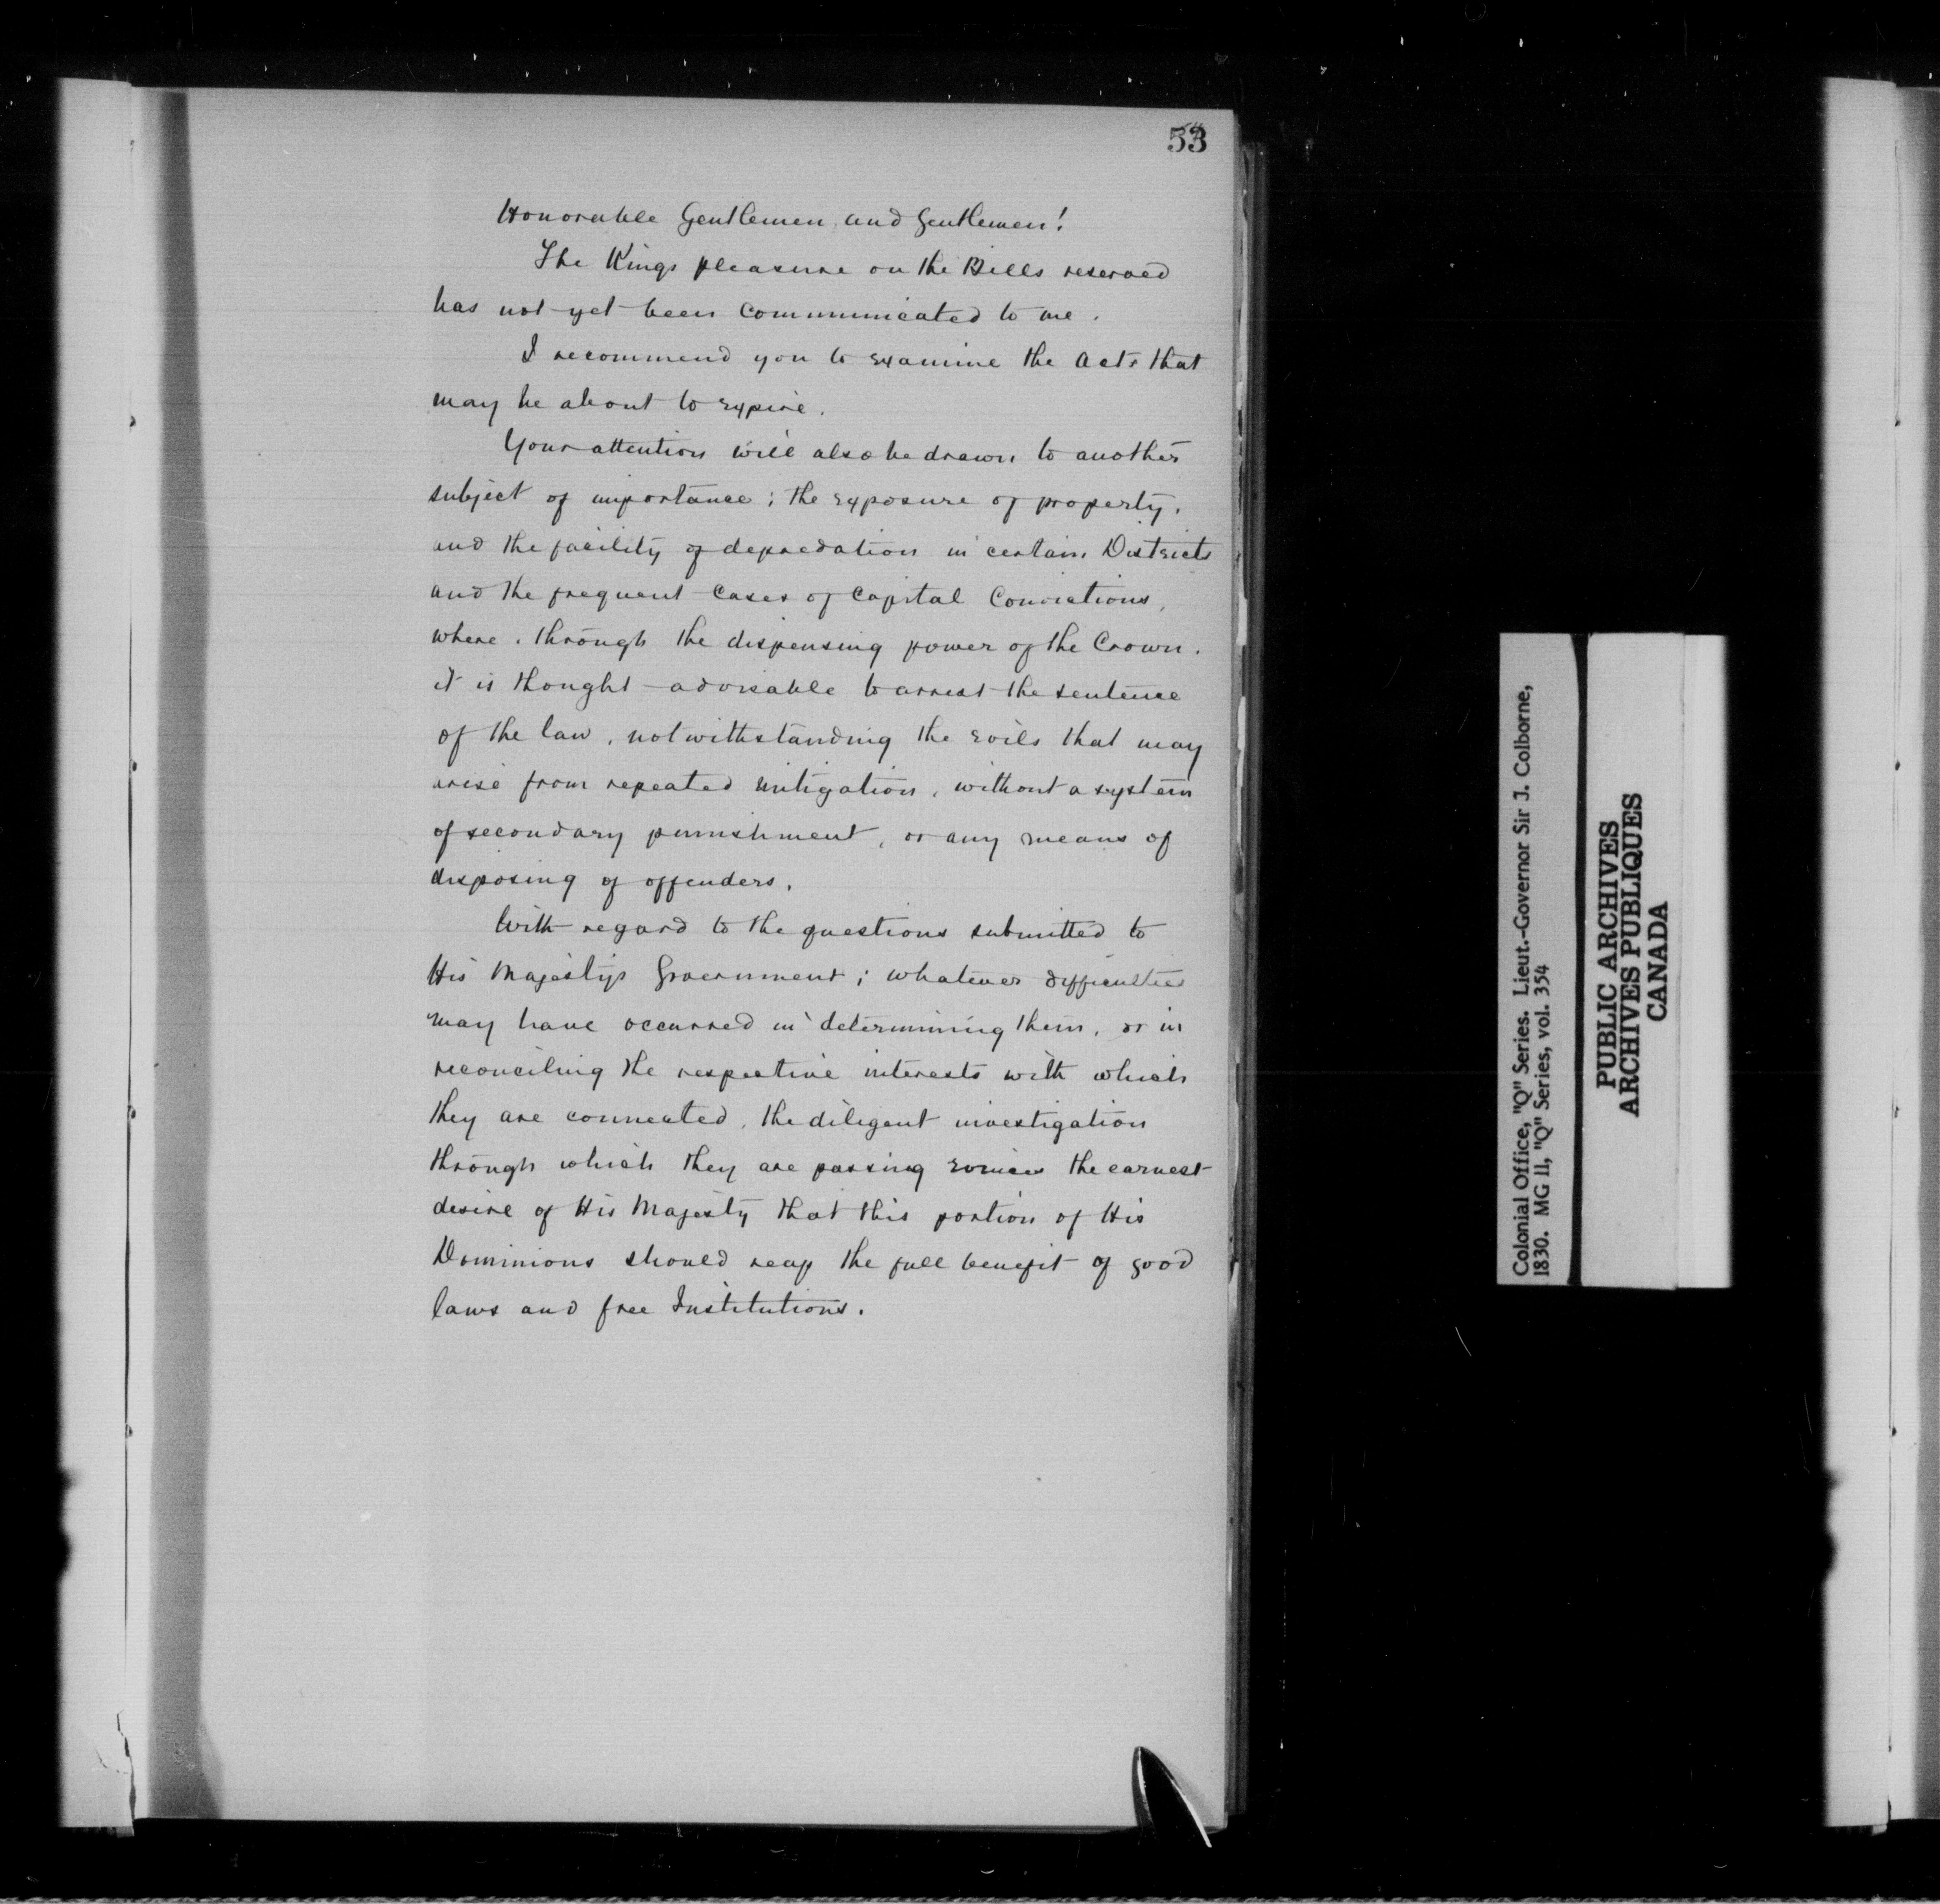 53
Honorable Gentlemen, and Gentlemen!
The Kings pleasure on the Bills reserved
has not yet been communicated to me.
I recommend you to examine the Acts that
may be about to expire.
Your attention will also be drawn to another
subject of importance; the exposure of property,
and the facility of depredation in certain Districts
and the frequent cases of Capital Convictions,
where, through the dispensing power of the Crown,
it is thought advisable to arrest the sentence
of the law, notwithstanding the evils that may
arise from repeated mitigation, without a system
of secondary punishment, or any means of
disposing of offenders.
With regard to the questions submitted to
His Majestys Government; whatever difficulties
may have occurred in determining them, or in
reconciling the respective interests with which
they are connected, the diligent investigation
through which they are passing evinces the earnest
desire of His Majesty that this portion of His
Dominions should reap the full benefit of good
laws and free Institutions.
Colonial Office, "Q" Series. Lieut.-Governor Sir J. Colborne,
1830. MG 11, "Q" Series, vol. 354
PUBLIC ARCHIVES
ARCHIVES PUBLIQUES
CANADA